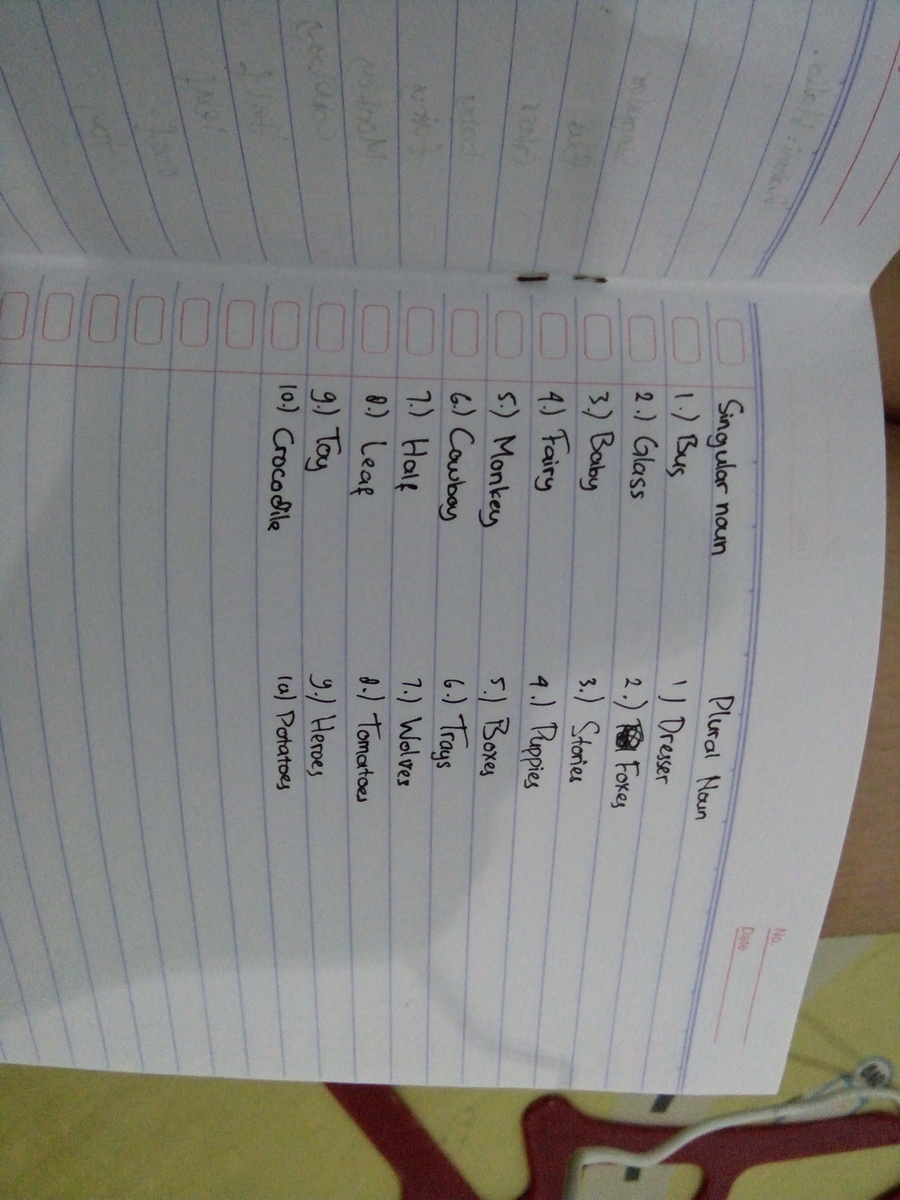 No.
Date
Singular noun Plural Noun
1.) Bus 1.) Dresser
2.) Glass 2.) Foxes
3.) Baby 3.) Stories
4.) Fairy 4.) Puppies
5.) Monkey 5.) Boxes
6.) Cowboy 6.) Trays
7.) Half 7.) Wolves
8.) Leaf 8.) Tomatoes
9.) Toy 9.) Heroes
10.) Crocodile 10) Potatoes